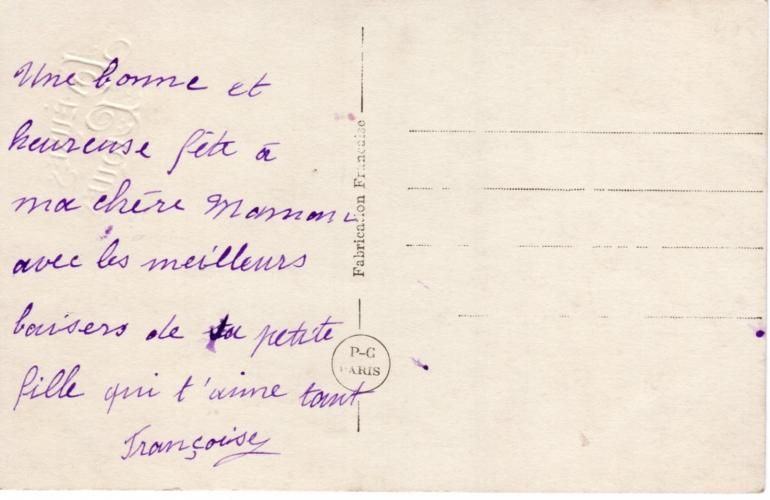 Une bonne et
heureuse fête à
ma chère Maman
avec les meilleurs
baisers de ta petite
fille qui t'aime tant
Françoise
Fabrication Française
P-C
PARIS